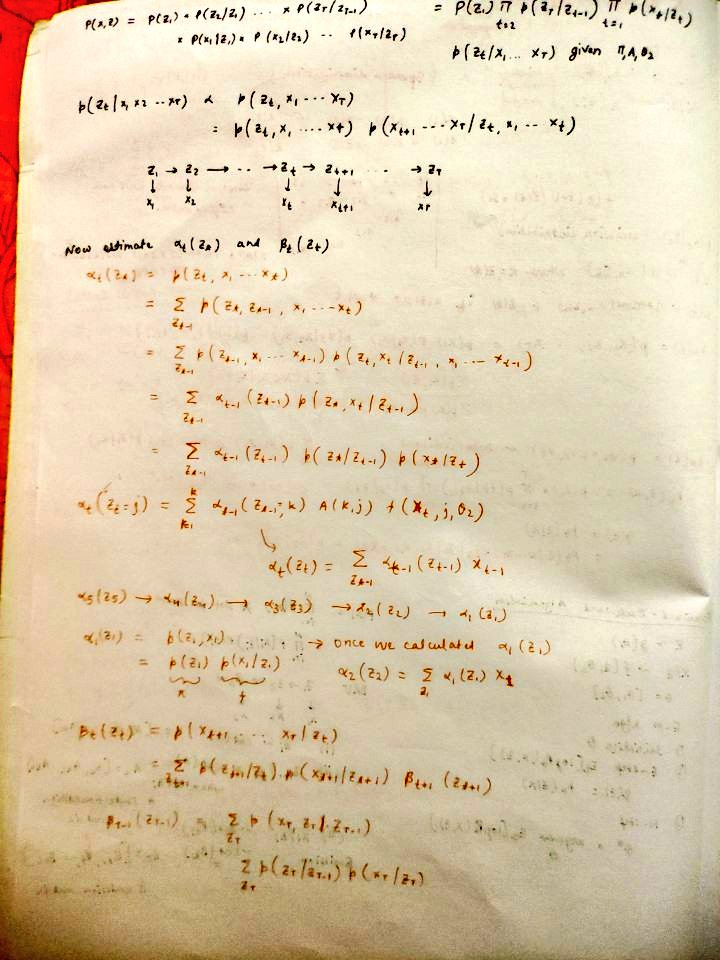 P(x,z) = P(z₁) * P(z₂/z₁) .... × P(z_T/z_{T-1}) = P(z₁) Π_{t=2} p(z_t/z_{t-1}) Π_{t=1} p(x_t/z_t)
× P(x₁/z₁) * P(x₂/z₂) .. P(x_T/z_T)
p(z_t/x₁... x_T) given Π, A, θ₂
p(z_t | x₁ x₂ ... x_T) α p(z_t, x₁ .... x_T)
= p(z_t, x₁ .... x_t) p(x_{t+1} ... x_T / z_t, x₁ ... x_t)
z₁ → z₂ → .. → z_t → z_{t+1} ... → z_T
↓ ↓ ↓ ↓ ↓
x₁ x₂ x_t x_{t+1} x_T
Now estimate α_t(z_t) and β_t(z_t)
α_t(z_t) = p(z_t, x₁ ... x_t)
= Σ_{z_{t-1}} p(z_t, z_{t-1}, x₁ ... x_t)
= Σ_{z_{t-1}} p(z_{t-1}, x₁ ... x_{t-1}) p(z_t, x_t / z_{t-1}, x₁ ... x_{t-1})
= Σ_{z_{t-1}} α_{t-1}(z_{t-1}) p(z_t, x_t / z_{t-1})
= Σ_{z_{t-1}} α_{t-1}(z_{t-1}) p(z_t/z_{t-1}) p(x_t/z_t)
α_t(z_t=j) = Σ_{k=1}^{k} α_{t-1}(z_{t-1}=k) A(k,j) f(x_t, j, θ₂)
↘ α_t(z_t) = Σ_{z_{t-1}} α_{t-1}(z_{t-1}) x_{t-1}
α₅(z₅) → α₄(z₄) → α₃(z₃) → α₂(z₂) → α₁(z₁)
α₁(z₁) = p(z₁, x₁) → once we calculated α₁(z₁)
= p(z₁) p(x₁/z₁) α₂(z₂) = Σ_{z₁} α₁(z₁) x
π f
β_t(z_t) = p(x_{t+1} ... x_T / z_t)
= Σ_{z_{t+1}} p(z_{t+1}/z_t) p(x_{t+1}/z_{t+1}) β_{t+1}(z_{t+1})
β_{T-1}(z_{T-1}) = Σ_{z_T} p(x_T, z_T / z_{T-1})
Σ_{z_T} p(z_T/z_{T-1}) p(x_T/z_T)